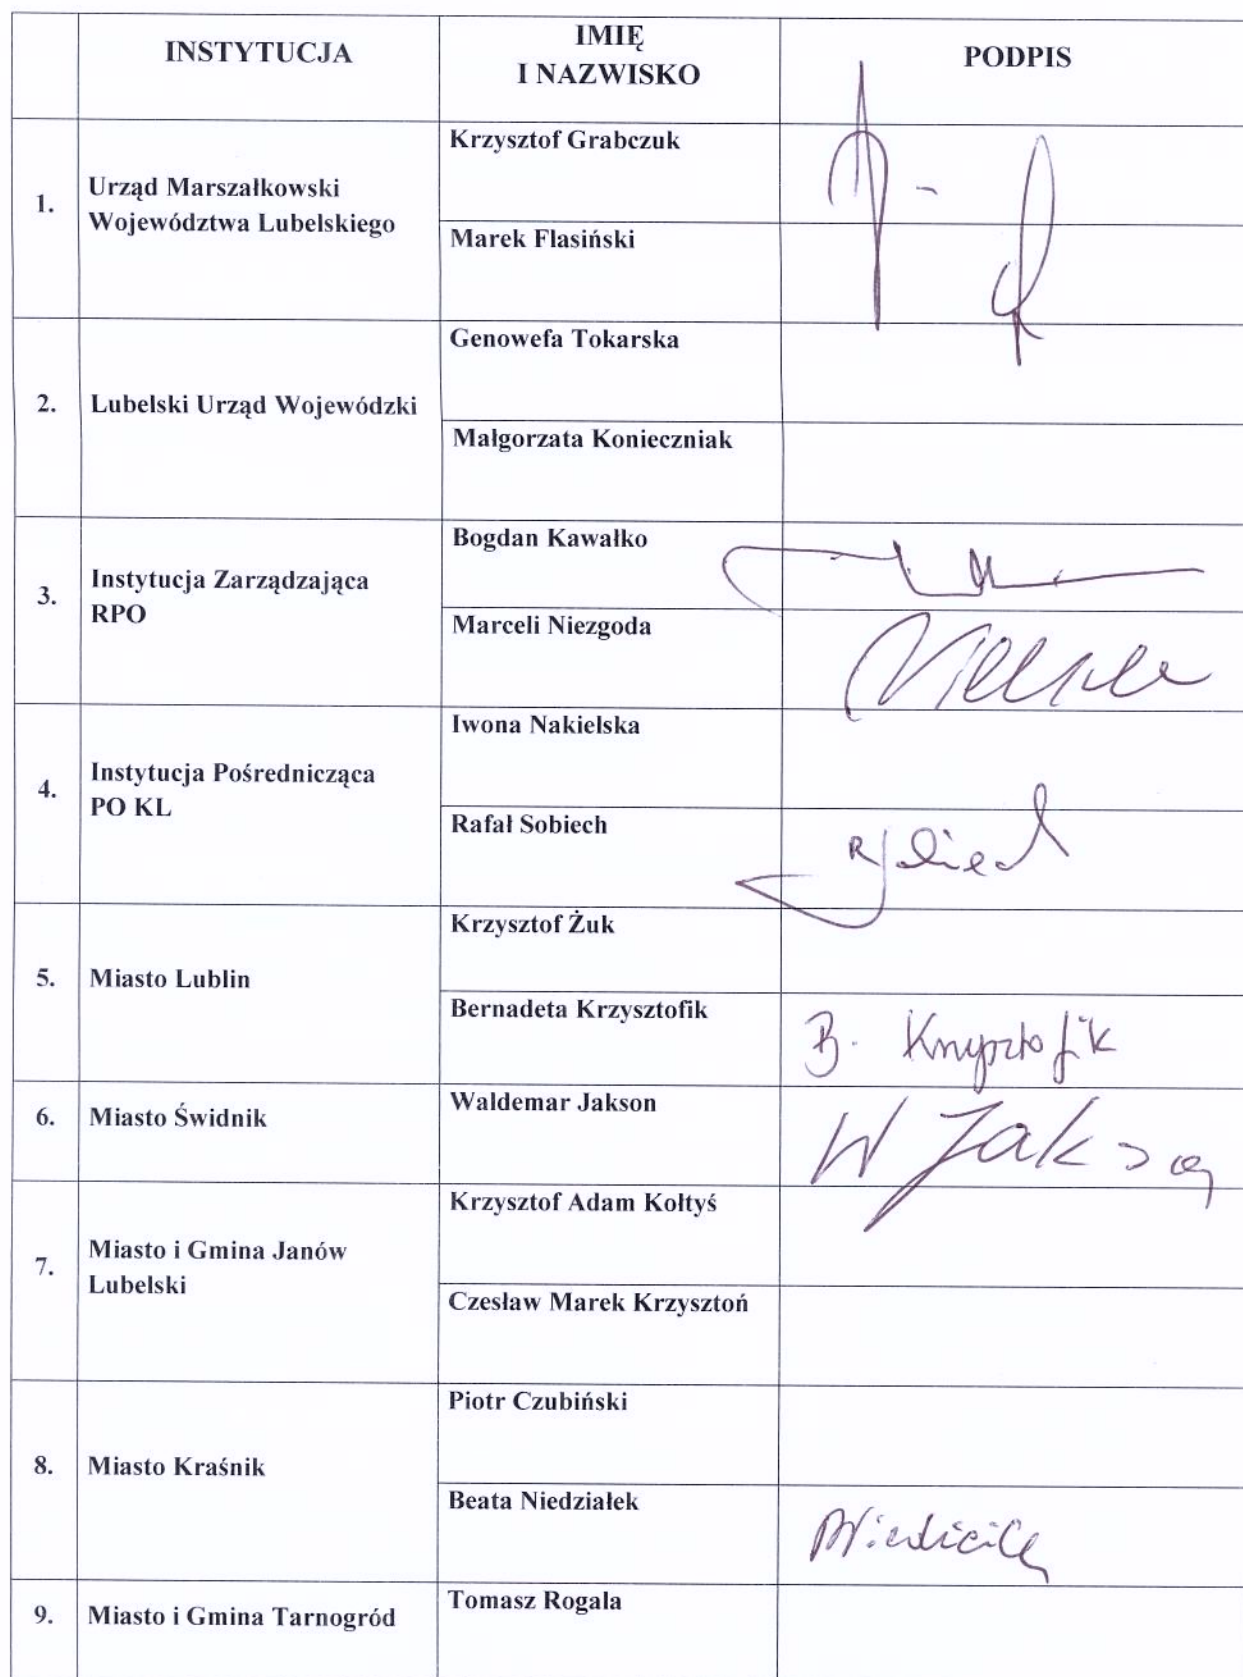 INSTYTUCJA
IMIĘ
I NAZWISKO
PODPIS
1.
Urząd Marszałkowski
Województwa Lubelskiego
Krzysztof Grabczuk
Marek Flasiński
2.
Lubelski Urząd Wojewódzki
Genowefa Tokarska
Małgorzata Konieczniak
3.
Instytucja Zarządzająca
RPO
Bogdan Kawałko
Marceli Niezgoda
4.
Instytucja Pośrednicząca
PO KL
Iwona Nakielska
Rafał Sobiech
5.
Miasto Lublin
Krzysztof Żuk
Bernadeta Krzysztofik
B. Krzysztofik
6.
Miasto Świdnik
Waldemar Jakson
W Jakson
7.
Miasto i Gmina Janów
Lubelski
Krzysztof Adam Kołtyś
Czesław Marek Krzysztoń
8.
Miasto Kraśnik
Piotr Czubiński
Beata Niedziałek
9.
Miasto i Gmina Tarnogród
Tomasz Rogala